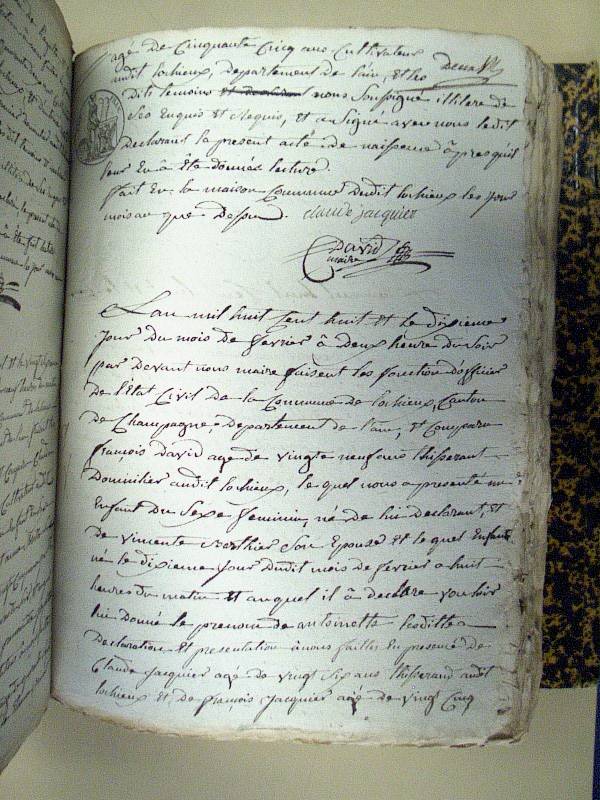 age de Cinquante Cinq ans Cultivateur
audit lochieux, departement de l'ain, et les
dits temoins nous Soussigné illitere de
Séo Enquis et Requis, et a Signé avec nous ledit
declarant le present acte de naissence à pres qu'il
leur En à Eté donnée lecture.
fait En la maison Commune dudit lochieux les jour
mois an que Dessus. claude jacquier
David
maire
L'an mil huit Cent huit Et le dixieme
jour du mois de fevrier à deux heure du Soir
par devant nous maire faisent les fonction d'officier
de l'Etat Civil de la Commune de lochieux, Canton
de Champagne departement de l'ain, Est Comparu
françois david age de vingte neuf ans thisserant
Domicilier audit lochieux, le quel nous a presenté un
Enfant du Sexe feminin, né de lui Declarant, Et
de Barthier Son Epouse Et le quel Enfant
né le dixieme jour dudit mois de fevrier a huit
heures du matin Et auquel il à declare vouloir
lui donné le prenom de antoinette lesdittes
Declaration Et presentation à nous faittes En presence de
Claude jacquier agé de vingt Six ans thisserand audit
lochieux et, de francois jacquier agé de vingt Cinq